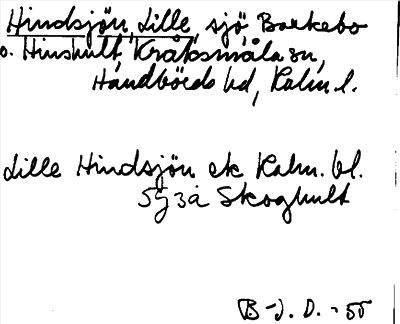 Hindsjön, Lille, sjö Barkebo
o. Hinshult, Kråksmåla sn,
Handbörds hd, Kalm. l.
Lille Hindsjön ek Kalm. bl.
5g3a Skoghult
B-J. D. -55